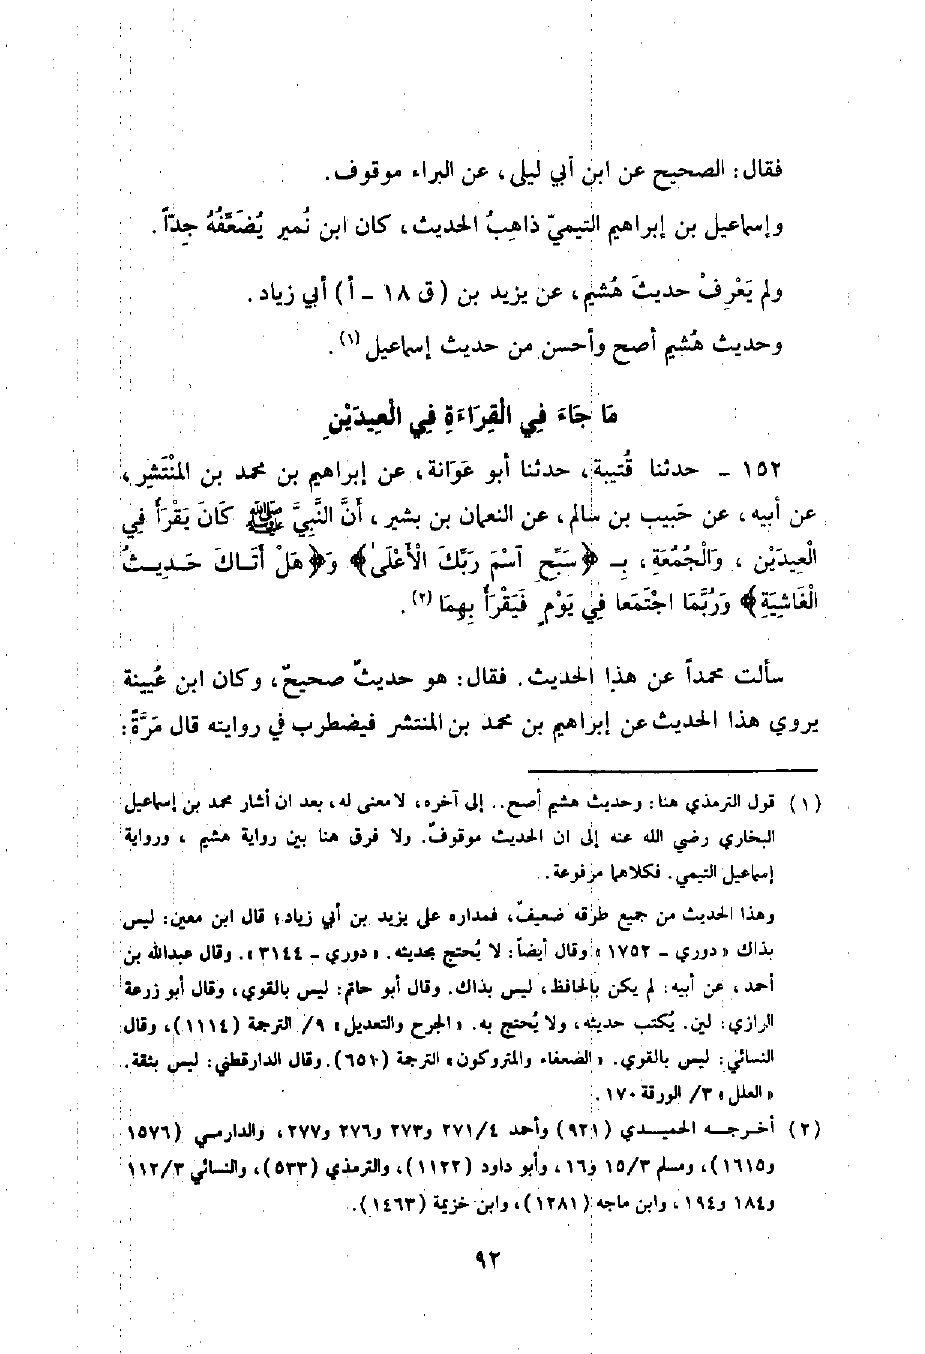 فقال: الصحيح عن ابن أبي ليلى، عن البراء موقوف.
وإسماعيل بن إبراهيم التيميّ ذاهبُ الحديث، كان ابن نُمير يُضَعِّفُهُ جدّاً.
ولم يَعْرِفْ حديثَ هُشيم، عن يزيد بن (ق ١٨ - أ) أبي زياد.
وحديث هُشيم أصح وأحسن من حديث إسماعيل (١).
مَا جَاءَ فِي القِرَاءَةِ فِي الْعِيدَيْنِ
١٥٢ - حدثنا قُتيبة، حدثنا أبو عَوَانة، عن إبراهيم بن محمد بن المُنْتَشِر،
عن أبيه، عن حَبيب بن سَالم، عن النعمان بن بشير، أَنَّ النَّبِيَّ ﷺ كَانَ يَقْرَأُ فِي
الْعِيدَيْنِ، وَالْجُمُعَةِ، بِـ ﴿سَبِّحِ اسْمَ رَبِّكَ الْأَعْلَىٰ﴾ وَ﴿هَلْ أَتَاكَ حَدِيثُ
الْغَاشِيَةِ﴾ وَرُبَّمَا اجْتَمَعَا فِي يَوْمٍ فَيَقْرَأُ بِهِمَا (٢).
سألت محمداً عن هذا الحديث. فقال: هو حديثٌ صحيحٌ، وكان ابن عُيينة
يروي هذا الحديث عن إبراهيم بن محمد بن المنتشر فيضطرب في روايته قال مَرَّةً:
(١) قول الترمذي هنا: وحديث هشيم أصح.. إلى آخره، لا معنى له، بعد ان أشار محمد بن إسماعيل
البخاري رضي الله عنه إلى ان الحديث موقوفٌ. ولا فرق هنا بين رواية هشيم، ورواية
إسماعيل التيمي. فكلاهما مرفوعة.
وهذا الحديث من جميع طرقه ضعيفٌ، فمداره على يزيد بن أبي زياد؛ قال ابن معين: ليس
بذاك «دوري - ١٧٥٢» وقال أيضاً: لا يُحتج بحديثه. «دوري - ٣١٤٤». وقال عبدالله بن
أحمد، عن أبيه: لم يكن بالحافظ، ليس بذاك. وقال أبو حاتم: ليس بالقوي، وقال أبو زرعة
الرازي: لين. يُكتب حديثه، ولا يُحتج به. «الجرح والتعديل» ٩/ الترجمة (١١١٤)، وقال
النسائي: ليس بالقوي. «الضعفاء والمتروكون» الترجمة (٦٥١). وقال الدارقطني: ليس بثقة.
«العلل» ٣/ الورقة ١٧٠.
(٢) أخرجه الحميدي (٩٢١) وأحمد ٢٧١/٤ و٢٧٣ و٢٧٦ و٢٧٧، والدارمي (١٥٧٦
و١٦١٥)، ومسلم ١٥/٣ و١٦، وأبو داود (١١٢٢)، والترمذي (٥٣٣)، والنسائي ١١٢/٣
و١٨٤ و١٩٤، وابن ماجه (١٢٨١)، وابن خزيمة (١٤٦٣).
٩٢